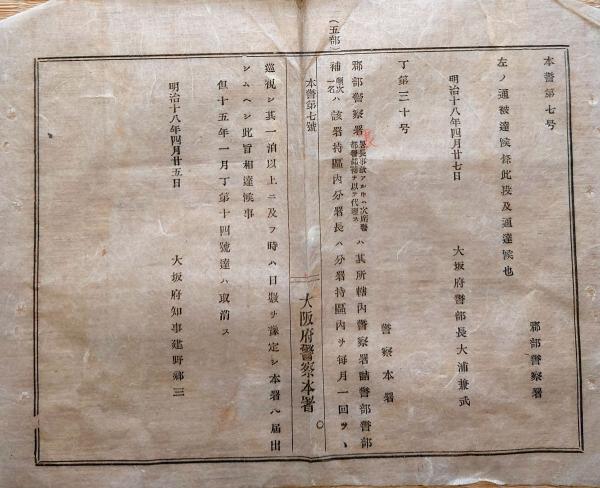 本警第七号
郡部警察署
左ノ通被達候条此段及通達候也
明治十八年四月廿七日
大坂府警部長大浦兼武
丁第三十号
警察本署
郡部警察署長事故アルトキハ次席警部警部補ヲ以テ代理スハ其所轄内警察署詰警部警部
補ハ該署持區內分署長ハ分署持區內ヲ每月一回ヅヽ
(五部)
本警第七號
大阪府警察本署
巡視シ其一泊以上ニ及フ時ハ日數ヲ豫定シ本署ヘ届出
シムヘシ此旨相達候事
但十五年一月丁第十四號達ハ取消ス
明治十八年四月廿五日
大坂府知事建野鄕三